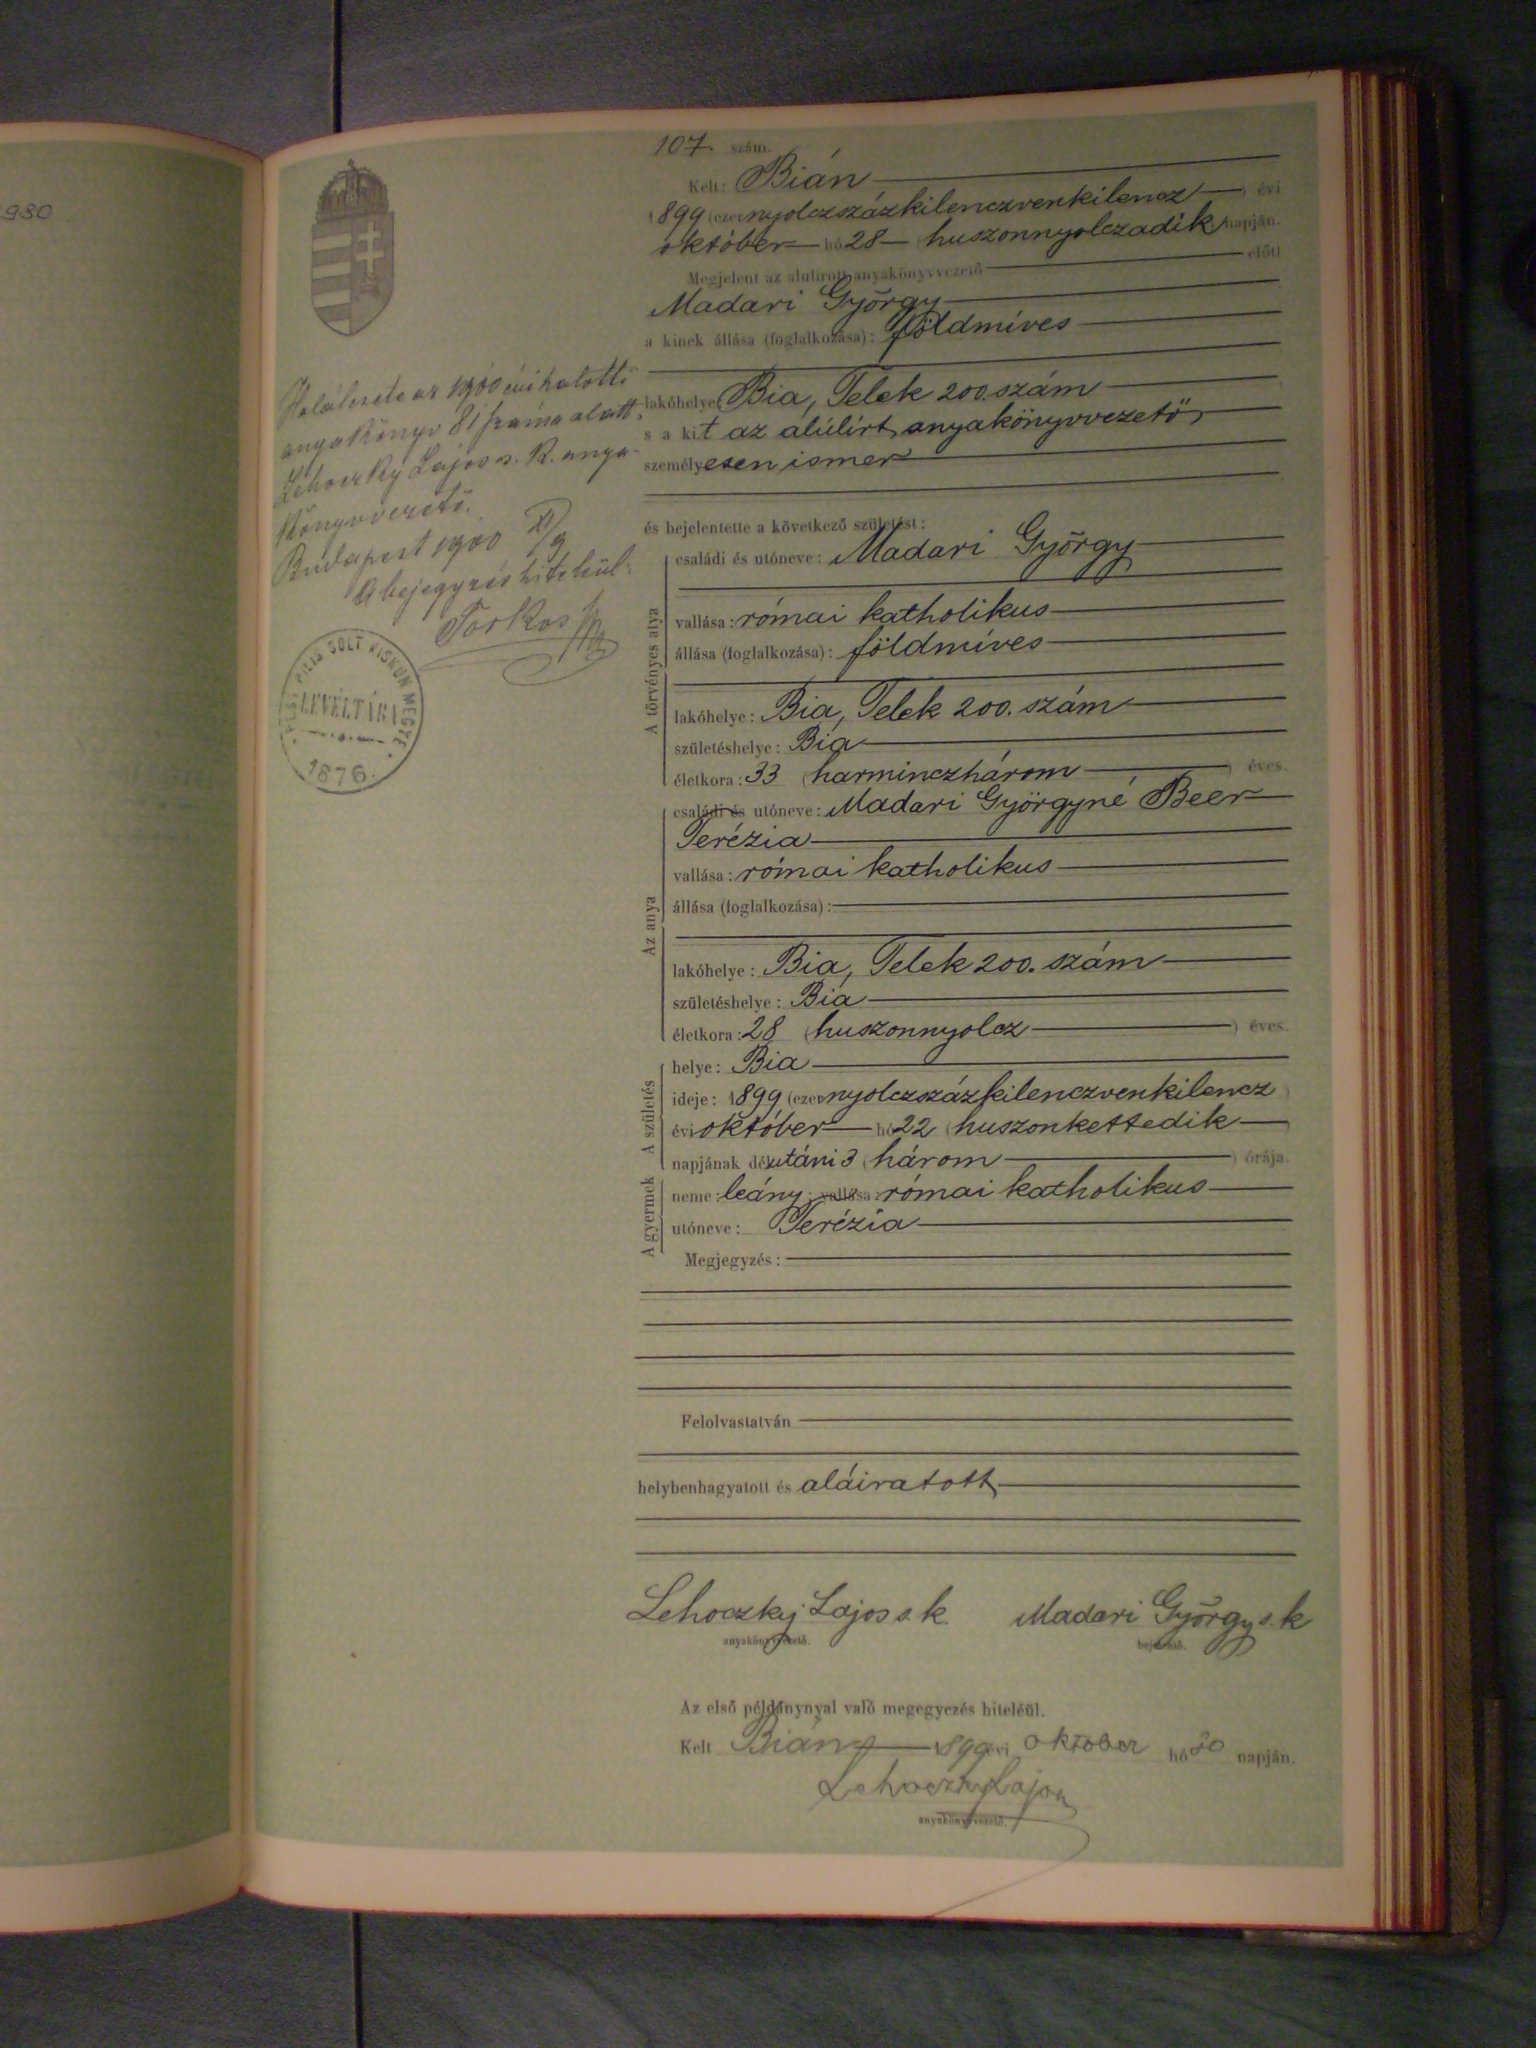 980
107. szám.
Kelt: Bián
1899 (ezernyolczszázkilenczvenkilencz) évi
október hó 28 (huszonnyolczadik) napján.
Megjelent az alulirott anyakönyvvezető előtt
Madari György
a kinek állása (foglalkozása): földmíves
lakóhelye Bia, Telek 200. szám
s a kit az alúlírt anyakönyvvezető
személyesen ismer
és bejelentette a következő születést:
A törvényes atya
családi és utóneve: Madari György
vallása: római katholikus
állása (foglalkozása): földmíves
lakóhelye: Bia, Telek 200. szám
születéshelye: Bia
életkora: 33 (harminczhárom) éves.
Az anya
családi és utóneve: Madari Györgyné Beer
Terézia
vallása: római katholikus
állása (foglalkozása):
lakóhelye: Bia, Telek 200. szám
születéshelye: Bia
életkora: 28 (huszonnyolcz) éves.
A születés
helye: Bia
ideje: 1899 (ezernyolczszázkilenczvenkilencz)
évi október hó 22 (huszonkettedik)
napjának délutáni 3 (három) órája.
A gyermek
neme: leány; vallása: római katholikus
utóneve: Terézia
Megjegyzés:
Felolvastatván
helybenhagyatott és aláiratott
Lehoczky Lajos s. k. Madari György s. k
anyakönyvvezető. bejelentő.
Az első példánynyal való megegyezés hiteléül.
Kelt Bián 1899 évi október hó 30 napján.
Lehoczky Lajos
anyakönyvvezető.
Halálesete az 1900 évi halotti
anyakönyv 81 száma alatt.
Lehoczky Lajos s. k. anya-
könyvvezető.
Budapest 1900 XI/9
A bejegyzés hiteléül:
Torkos
PEST PILIS SOLT KISKUN MEGYE
LEVÉLTÁRA
1876.